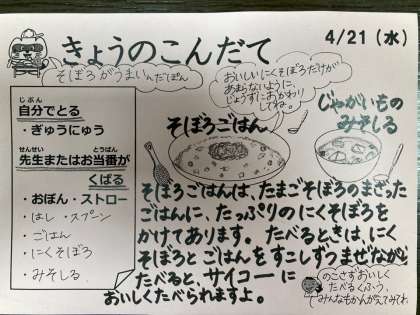 きょうのこんだて
4/21（水）
そぼろがうまいんだぽん
おいしいにくそぼろだけが
あまらないように、
じょうずにおかわり
してね。
じぶん
自分でとる
・ぎゅうにゅう
せんせい とうばん
先生またはお当番が
くばる
・おぼん・ストロー
・はし・スプーン
・ごはん
・にくそぼろ
・みそしる
そぼろごはん
じゃがいもの
みそしる
そぼろごはんは、たまごそぼろのまざった
ごはんに、たっぷりのにくそぼろを
かけてあります。たべるときは、にく
そぼろとごはんをすこしずつまぜながら
たべると、サイコーに
おいしくたべられますよ。
のこさずおいしく
たべるくふう、
みんなもかんがえてみてね。